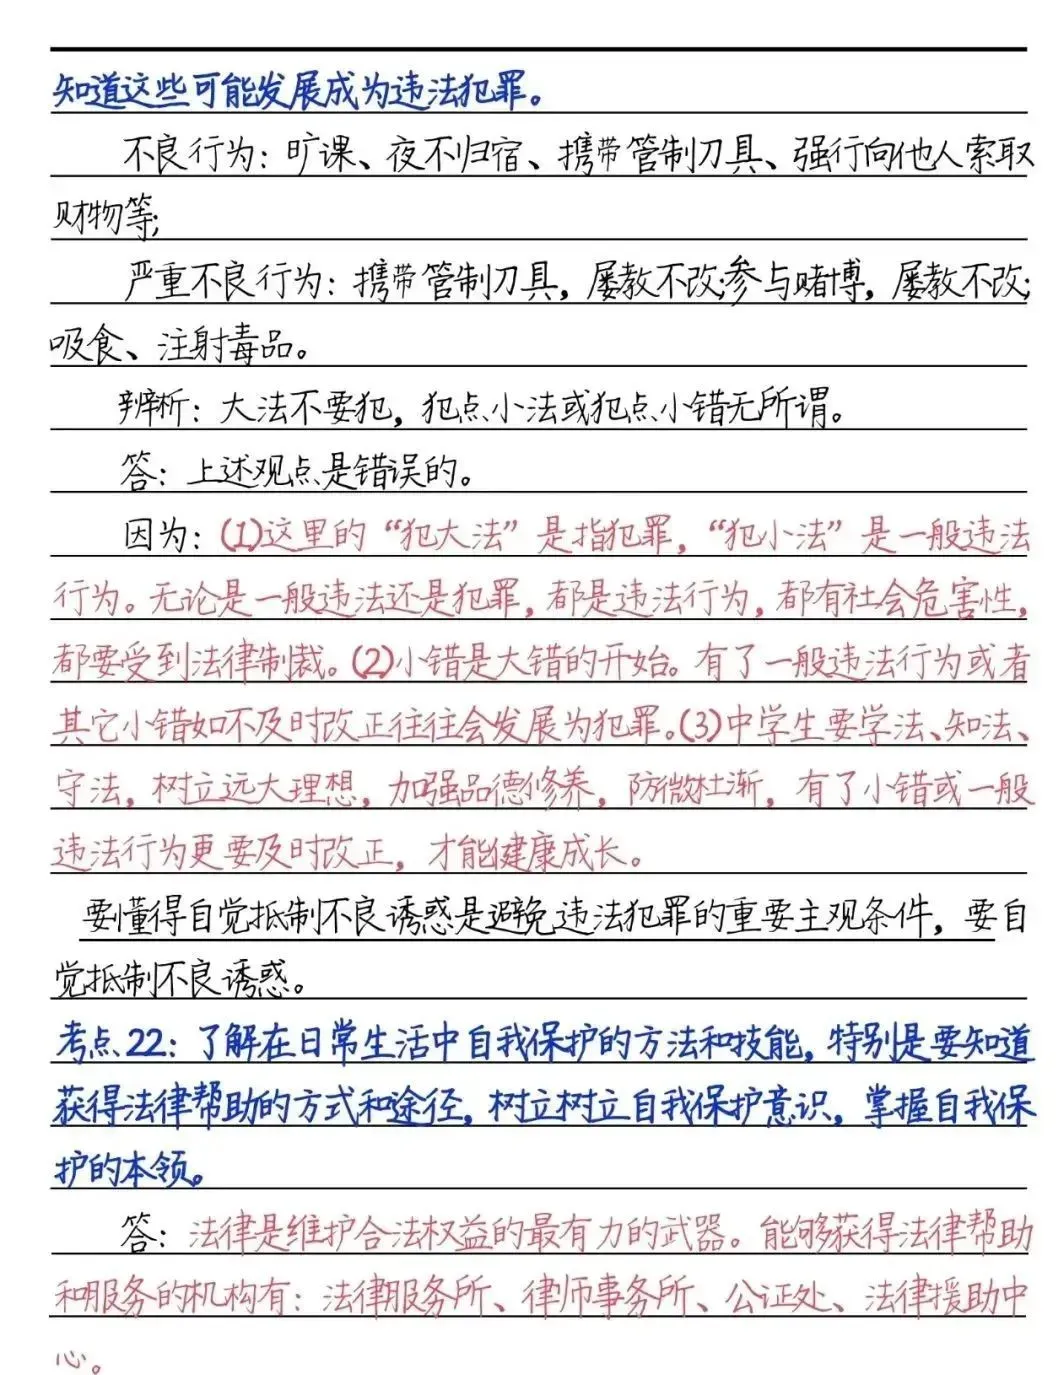 知道这些可能发展成为违法犯罪。
不良行为：旷课、夜不归宿、携带管制刀具、强行向他人索取
财物等;
严重不良行为：携带管制刀具，屡教不改;参与赌博，屡教不改;
吸食、注射毒品。
辨析：大法不要犯，犯点小法或犯点小错无所谓。
答：上述观点是错误的。
因为：(1)这里的“犯大法”是指犯罪，“犯小法”是一般违法
行为。无论是一般违法还是犯罪，都是违法行为，都有社会危害性，
都要受到法律制裁。(2)小错是大错的开始。有了一般违法行为或者
其它小错如不及时改正往往会发展为犯罪。(3)中学生要学法、知法、
守法，树立远大理想，加强品德修养，防微杜渐，有了小错或一般
违法行为更要及时改正，才能健康成长。
要懂得自觉抵制不良诱惑是避免违法犯罪的重要主观条件，要自
觉抵制不良诱惑。
考点22：了解在日常生活中自我保护的方法和技能，特别是要知道
获得法律帮助的方式和途径，树立树立自我保护意识，掌握自我保
护的本领。
答：法律是维护合法权益的最有力的武器。能够获得法律帮助
和服务的机构有：法律服务所、律师事务所、公证处、法律援助中
心。